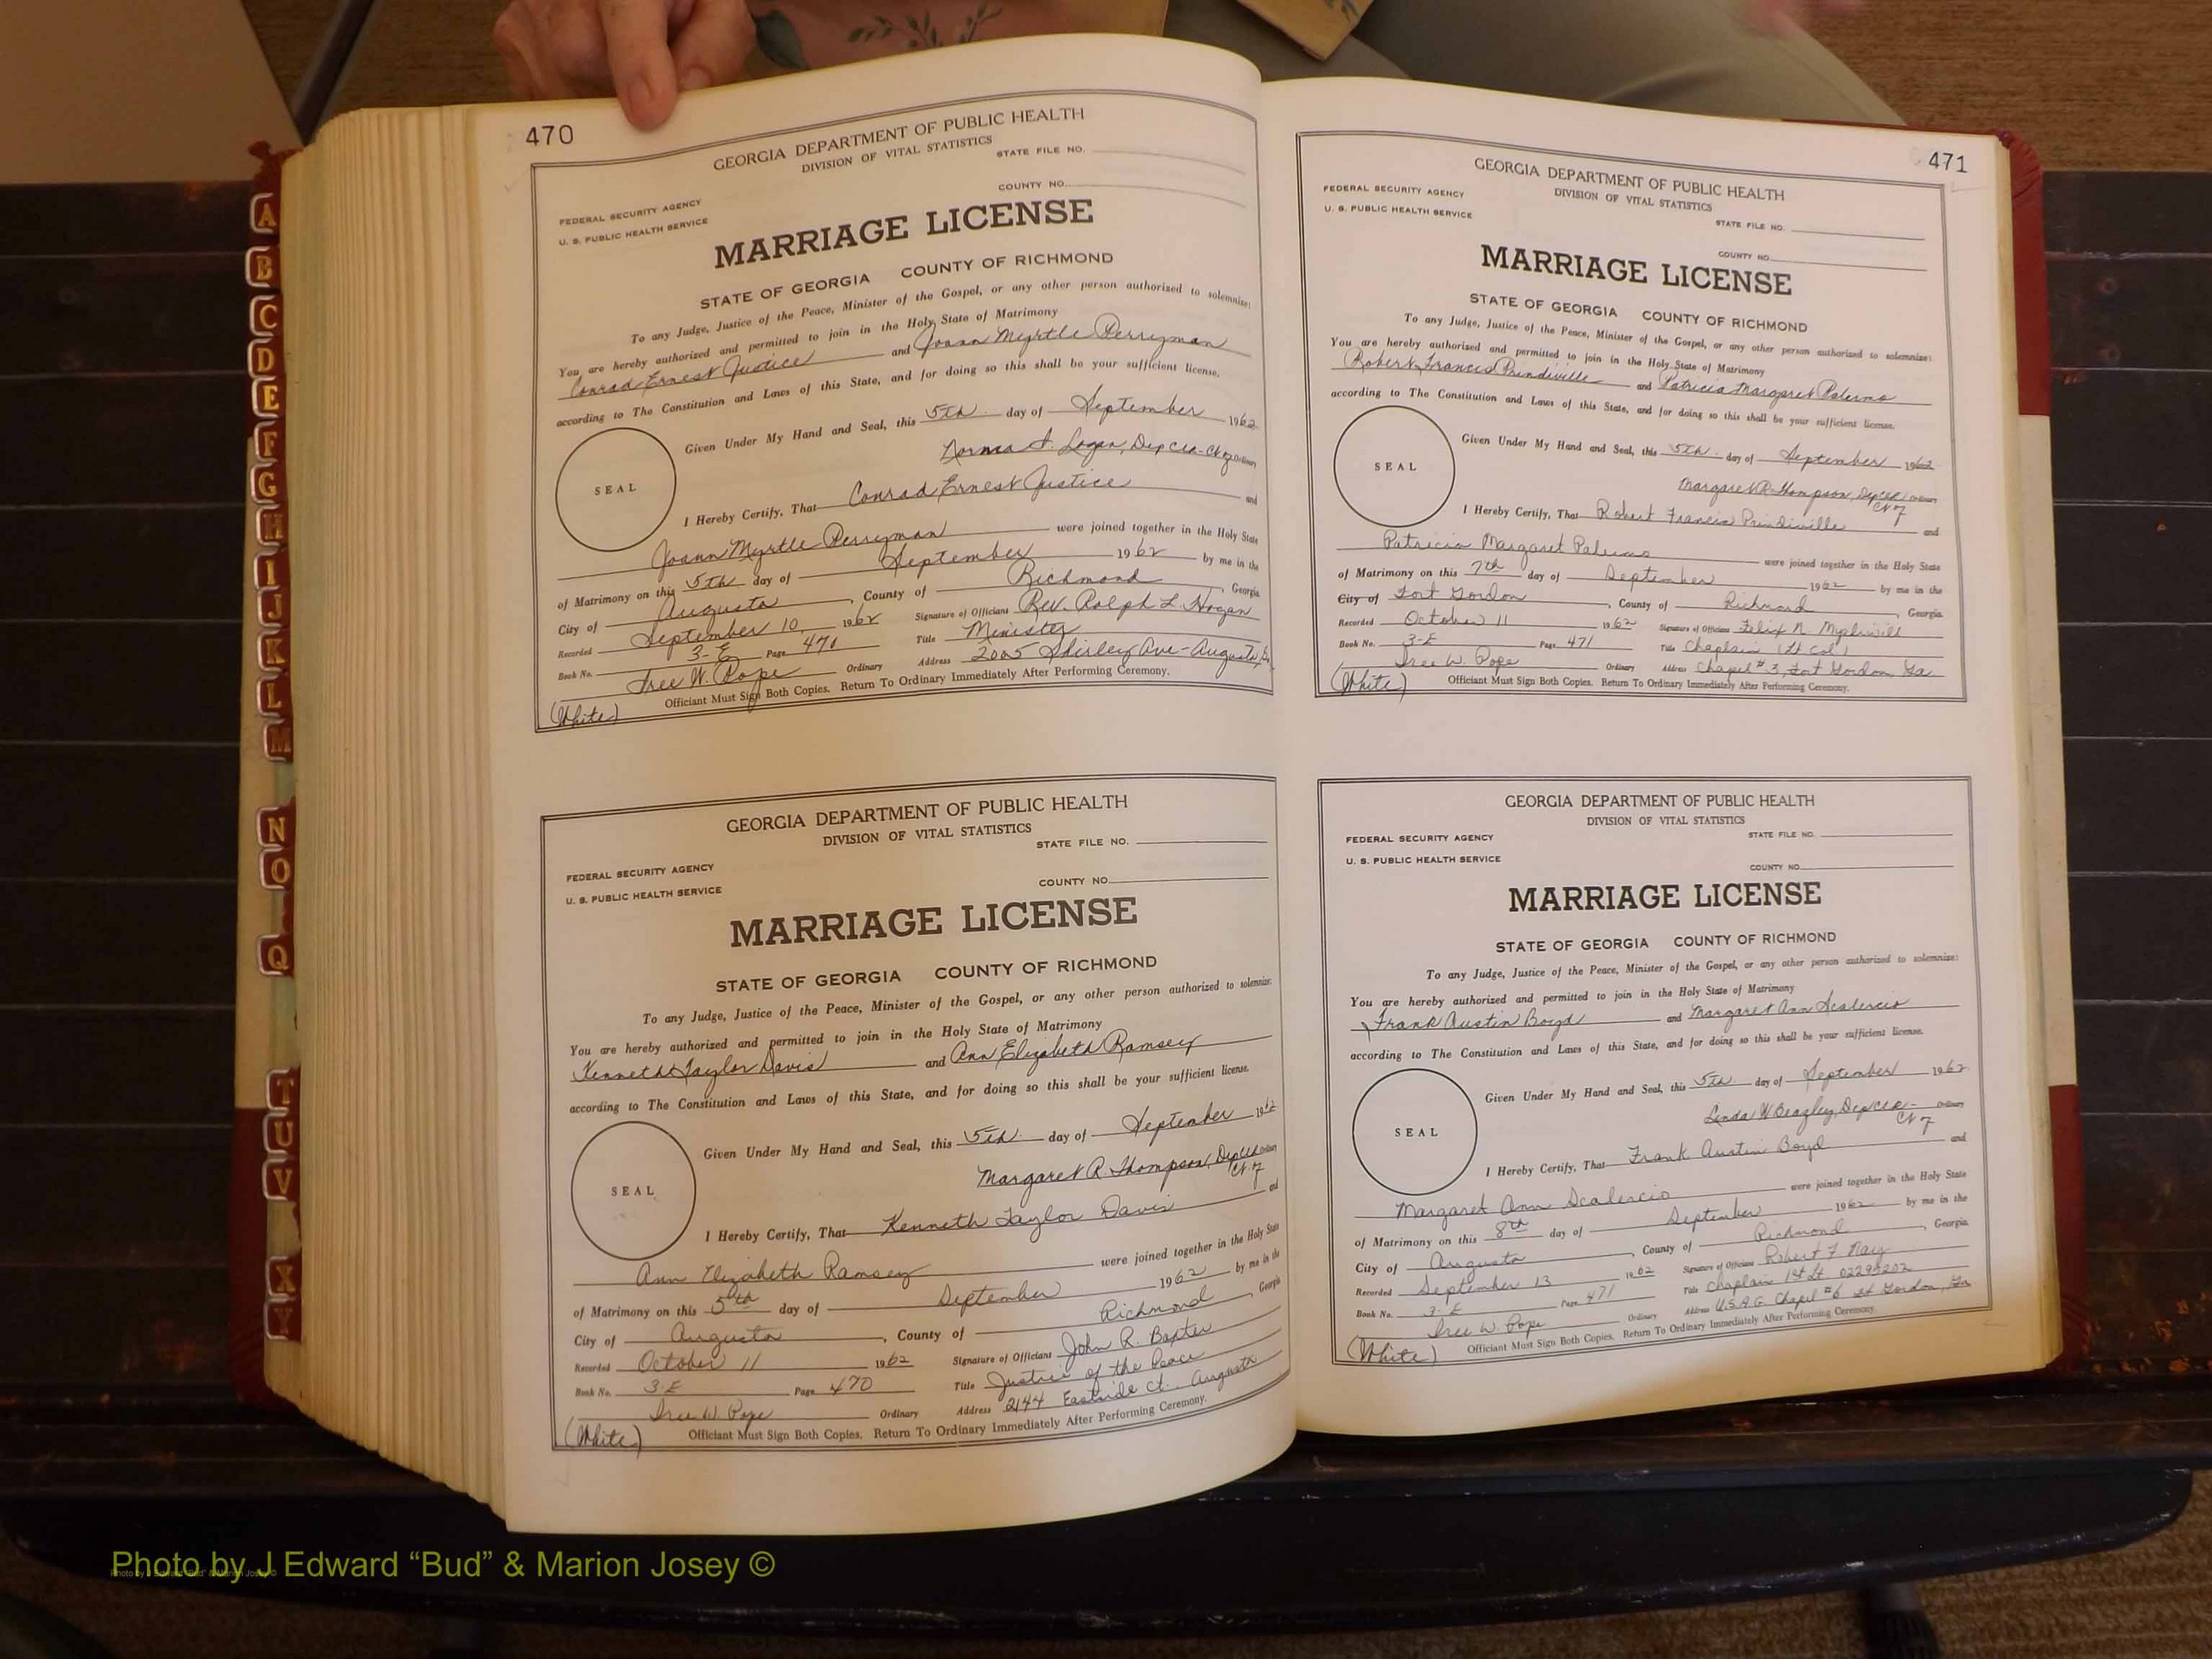 470
GEORGIA DEPARTMENT OF PUBLIC HEALTH
DIVISION OF VITAL STATISTICS
STATE FILE NO.
COUNTY NO.
FEDERAL SECURITY AGENCY
U. S. PUBLIC HEALTH SERVICE
MARRIAGE LICENSE
STATE OF GEORGIA COUNTY OF RICHMOND
To any Judge, Justice of the Peace, Minister of the Gospel, or any other person authorized to solemnize:
You are hereby authorized and permitted to join in the Holy State of Matrimony
Conrad Ernest Justice and Joann Myrtle Perryman
according to The Constitution and Laws of this State, and for doing so this shall be your sufficient license.
Given Under My Hand and Seal, this 5th day of September 1962
Norma Logan, Dep Clk Ordinary
SEAL
I Hereby Certify, That Conrad Ernest Justice and
Joann Myrtle Perryman were joined together in the Holy State
of Matrimony on this 5th day of September 1962 by me in the
City of Augusta, County of Richmond, Georgia
Recorded September 10 1962 Signature of Officiant Rev. Ralph L. Hogan
Book No. 3-E Page 471 Title Minister
Tree W. Pope Ordinary Address 2005 Shirley Ave - Augusta, Ga
Officiant Must Sign Both Copies. Return To Ordinary Immediately After Performing Ceremony.
(White)
GEORGIA DEPARTMENT OF PUBLIC HEALTH
DIVISION OF VITAL STATISTICS
STATE FILE NO.
FEDERAL SECURITY AGENCY
COUNTY NO.
U. S. PUBLIC HEALTH SERVICE
MARRIAGE LICENSE
STATE OF GEORGIA COUNTY OF RICHMOND
To any Judge, Justice of the Peace, Minister of the Gospel, or any other person authorized to solemnize:
You are hereby authorized and permitted to join in the Holy State of Matrimony
Kenneth Taylor Davis and Ann Elizabeth Ramsey
according to The Constitution and Laws of this State, and for doing so this shall be your sufficient license.
Given Under My Hand and Seal, this 5th day of September 1962
Margaret R Thompson, Dep Clk Ordinary
SEAL
I Hereby Certify, That Kenneth Taylor Davis and
Ann Elizabeth Ramsey were joined together in the Holy State
of Matrimony on this 5th day of September 1962 by me in the
City of Augusta, County of Richmond, Georgia
Recorded October 11 1962 Signature of Officiant John R. Baxter
Book No. 3-E Page 470 Title Justice of the Peace
Tree W. Pope Ordinary Address 2144 Eastside Ct. Augusta
Officiant Must Sign Both Copies. Return To Ordinary Immediately After Performing Ceremony.
(White)
471
GEORGIA DEPARTMENT OF PUBLIC HEALTH
DIVISION OF VITAL STATISTICS
FEDERAL SECURITY AGENCY
U. S. PUBLIC HEALTH SERVICE
STATE FILE NO.
COUNTY NO.
MARRIAGE LICENSE
STATE OF GEORGIA COUNTY OF RICHMOND
To any Judge, Justice of the Peace, Minister of the Gospel, or any other person authorized to solemnize:
You are hereby authorized and permitted to join in the Holy State of Matrimony
Robert Francis Prindiville and Patricia Margaret Palermo
according to The Constitution and Laws of this State, and for doing so this shall be your sufficient license.
Given Under My Hand and Seal, this 5th day of September 1962
Margaret R Thompson, Dep Clk Ordinary
SEAL
I Hereby Certify, That Robert Francis Prindiville and
Patricia Margaret Palermo were joined together in the Holy State
of Matrimony on this 7th day of September 1962 by me in the
City of Fort Gordon, County of Richmond Georgia
Recorded October 11 1962 Signature of Officiant Felix N.
Book No. 3-E Page 471 Title Chaplain (Lt Col)
Tree W. Pope Ordinary Address Chapel #3, Fort Gordon, Ga
Officiant Must Sign Both Copies. Return To Ordinary Immediately After Performing Ceremony.
(White)
GEORGIA DEPARTMENT OF PUBLIC HEALTH
DIVISION OF VITAL STATISTICS
STATE FILE NO.
FEDERAL SECURITY AGENCY
U. S. PUBLIC HEALTH SERVICE
COUNTY NO.
MARRIAGE LICENSE
STATE OF GEORGIA COUNTY OF RICHMOND
To any Judge, Justice of the Peace, Minister of the Gospel, or any other person authorized to solemnize:
You are hereby authorized and permitted to join in the Holy State of Matrimony
Frank Austin Boyd and Margaret Ann Scalercio
according to The Constitution and Laws of this State, and for doing so this shall be your sufficient license.
Given Under My Hand and Seal, this 5th day of September 1962
Linda W Beazley, Dep Clk Ordinary
SEAL
I Hereby Certify, That Frank Austin Boyd and
Margaret Ann Scalercio were joined together in the Holy State
of Matrimony on this 8th day of September 1962 by me in the
City of Augusta, County of Richmond, Georgia
Recorded September 13 1962 Signature of Officiant Robert F Nay
Book No. 3-E Page 471 Title Chaplain 1st Lt
Tree W. Pope Ordinary Address U.S.A.G. Chapel #6 Ft Gordon, Ga
Officiant Must Sign Both Copies. Return To Ordinary Immediately After Performing Ceremony.
(White)
A
B
C
D
E
F
G
H
I
J
K
L
M
N
O
Q
T
U
V
X
Y
Photo by J Edward “Bud” & Marion Josey ©
Photo by J Edward “Bud” & Marion Josey ©